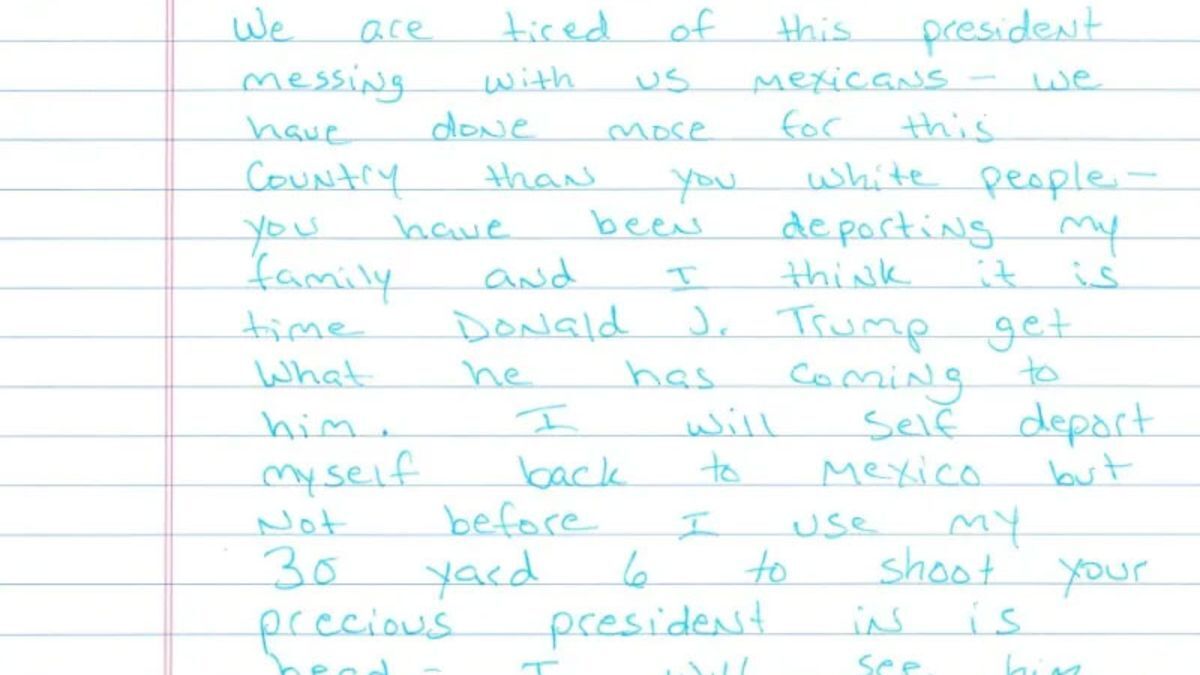 We are tired of this president
messing with us mexicans - we
have done more for this
Country than you white people -
you have been deporting my
family and I think it is
time Donald J. Trump get
What he has coming to
him. I will self deport
myself back to Mexico but
Not before I use my
30 yard 6 to shoot your
precious president in is
head - I will see him